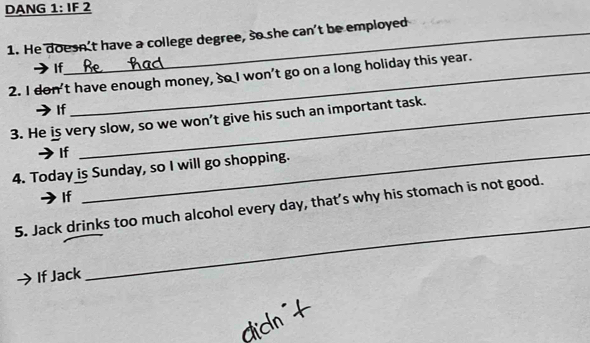 DANG 1: IF 2
1. He doesn't have a college degree, so she can't be employed
→ If He had
2. I don't have enough money, so I won't go on a long holiday this year.
→ If
3. He is very slow, so we won't give his such an important task.
→ If
4. Today is Sunday, so I will go shopping.
→ If
5. Jack drinks too much alcohol every day, that's why his stomach is not good.
→ If Jack
didn't